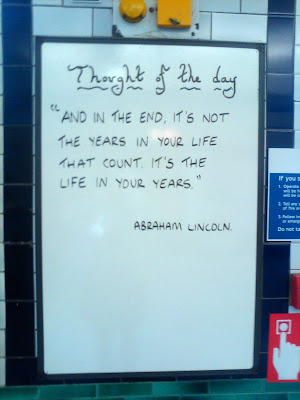 Thought of the day
"AND IN THE END, IT'S NOT
THE YEARS IN YOUR LIFE
THAT COUNT. IT'S THE
LIFE IN YOUR YEARS."
ABRAHAM LINCOLN.
If you s
1. Operate
will be h
will be o
2. Tell any
of fire or
3. Follow in
or emerge
Do not ta